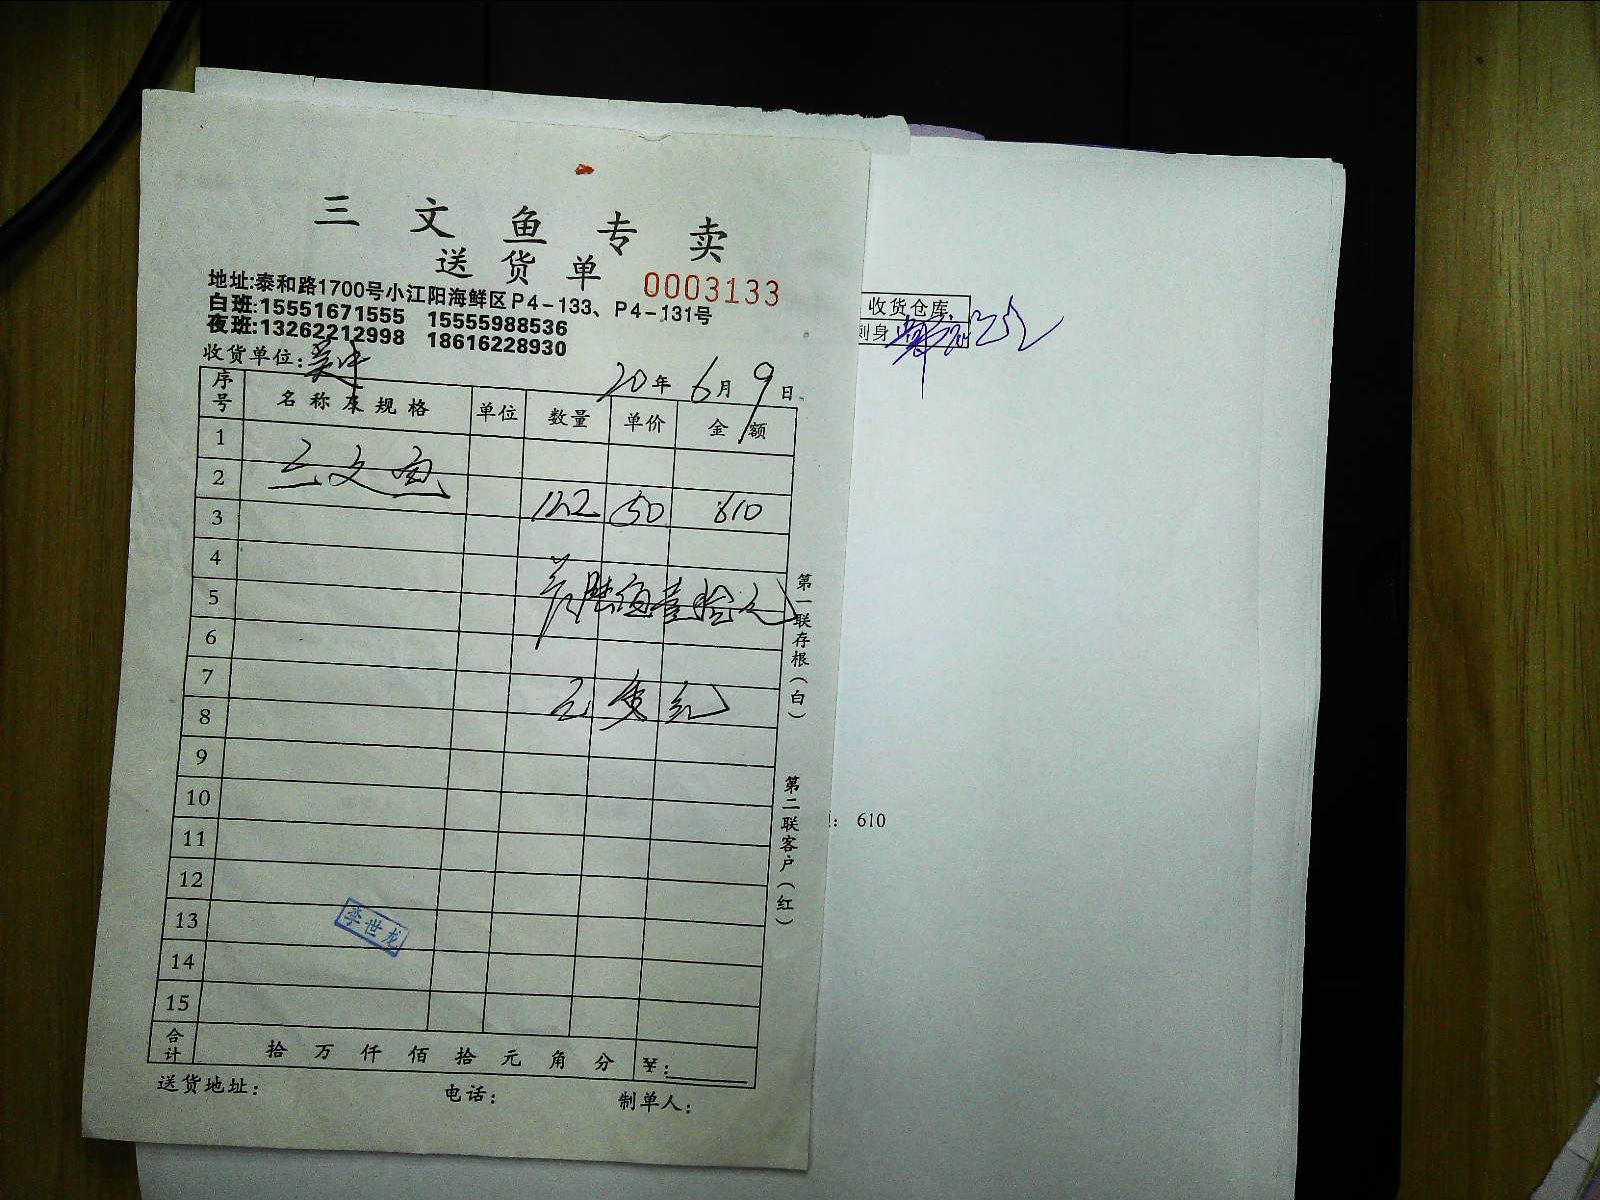 三文鱼专卖
送货单 0003133
地址:泰和路1700号小江阳海鲜区P4-133、P4-131号
白班:15551671555 15555988536
夜班:13262212998 18616228930
收货单位:
20年6月9日
序号 名称及规格 单位 数量 单价 金额
1
三文鱼
2
122 50 610
3
4
陆佰壹拾元
5
6
7
8
9
10
11
12
13
李世龙
14
15
合计 拾万仟佰拾元角分 ¥:
送货地址: 电话: 制单人:
第一联存根(白)
第二联客户(红)
收货仓库
刺身
: 610